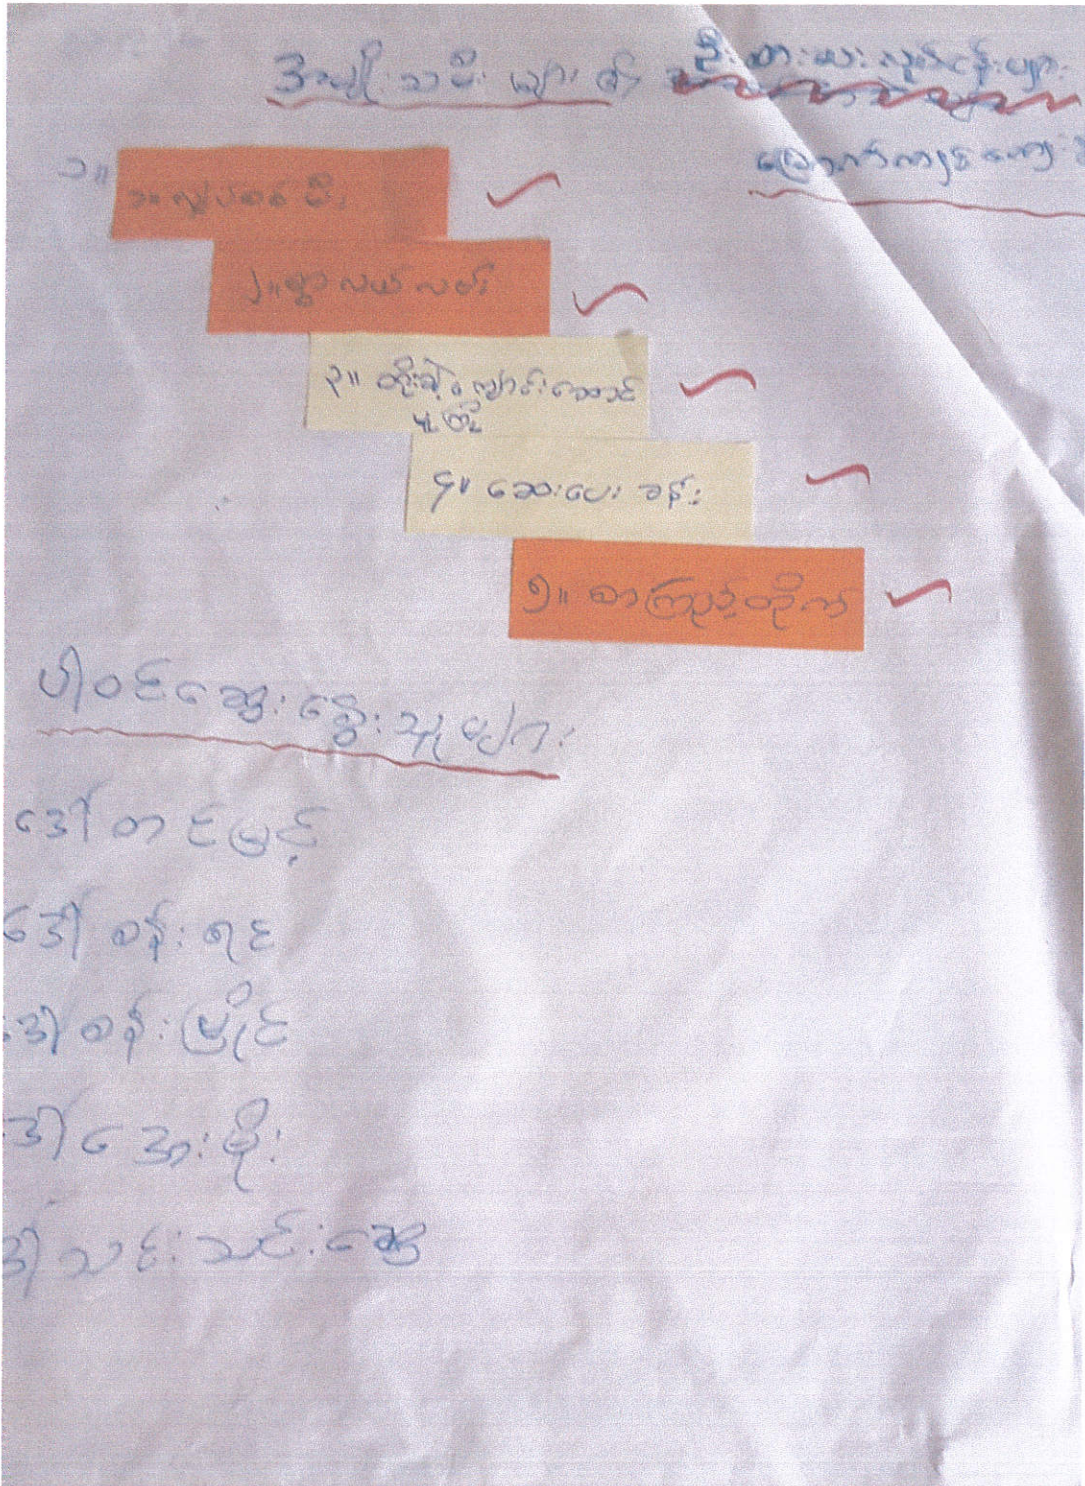 အမျိုးသမီးများ၏ ဦးစားပေးလုပ်ငန်းများ
၁။
၁။ လျှပ်စစ်မီး
၂။ ရွာလယ်လမ်း
၃။ တိုးချဲ့ကျောင်းဆောင်
မူကြို
၄။ ဆေးပေးခန်း
၅။ စာကြည့်တိုက်
ပါဝင်ဆွေးနွေးသူများ
ဒေါ်တင်မြင့်
ဒေါ်စန်းရင်
ဒေါ်စန်းမြိုင်
ဒေါ်အေးမိုး
ဒေါ်သင်းသင်းဆွေ